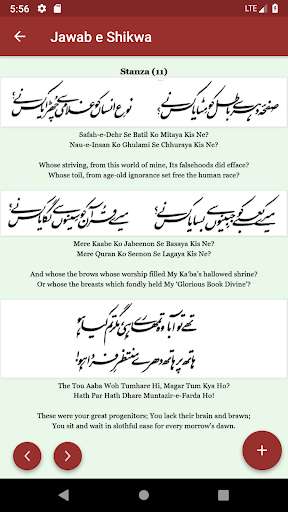 5:56 LTE
Jawab e Shikwa
Stanza (11)
صفحۂ دہر سے باطل کو مٹایا کس نے؟ نوعِ انساں کو غلامی سے چھڑایا کس نے؟
Safah-e-Dehr Se Batil Ko Mitaya Kis Ne?
Nau-e-Insan Ko Ghulami Se Chhuraya Kis Ne?
Whose striving, from this world of mine, Its falsehoods did efface?
Whose toil, from age-old ignorance set free the human race?
میرے کعبے کو جبینوں سے بسایا کس نے؟ میرے قرآن کو سینوں سے لگایا کس نے؟
Mere Kaabe Ko Jabeenon Se Basaya Kis Ne?
Mere Quran Ko Seenon Se Lagaya Kis Ne?
And whose the brows whose worship filled My Ka'ba's hallowed shrine?
Or whose the breasts which fondly held My 'Glorious Book Divine'?
تھے تو آبا وہ تمھارے ہی، مگر تم کیا ہو
ہاتھ پر ہاتھ دھرے منتظرِ فردا ہو!
The Tou Aaba Woh Tumhare Hi, Magar Tum Kya Ho?
Hath Par Hath Dhare Muntazir-e-Farda Ho!
These were your great progenitors; You lack their brain and brawn;
You sit and wait in slothful ease for every morrow's dawn.